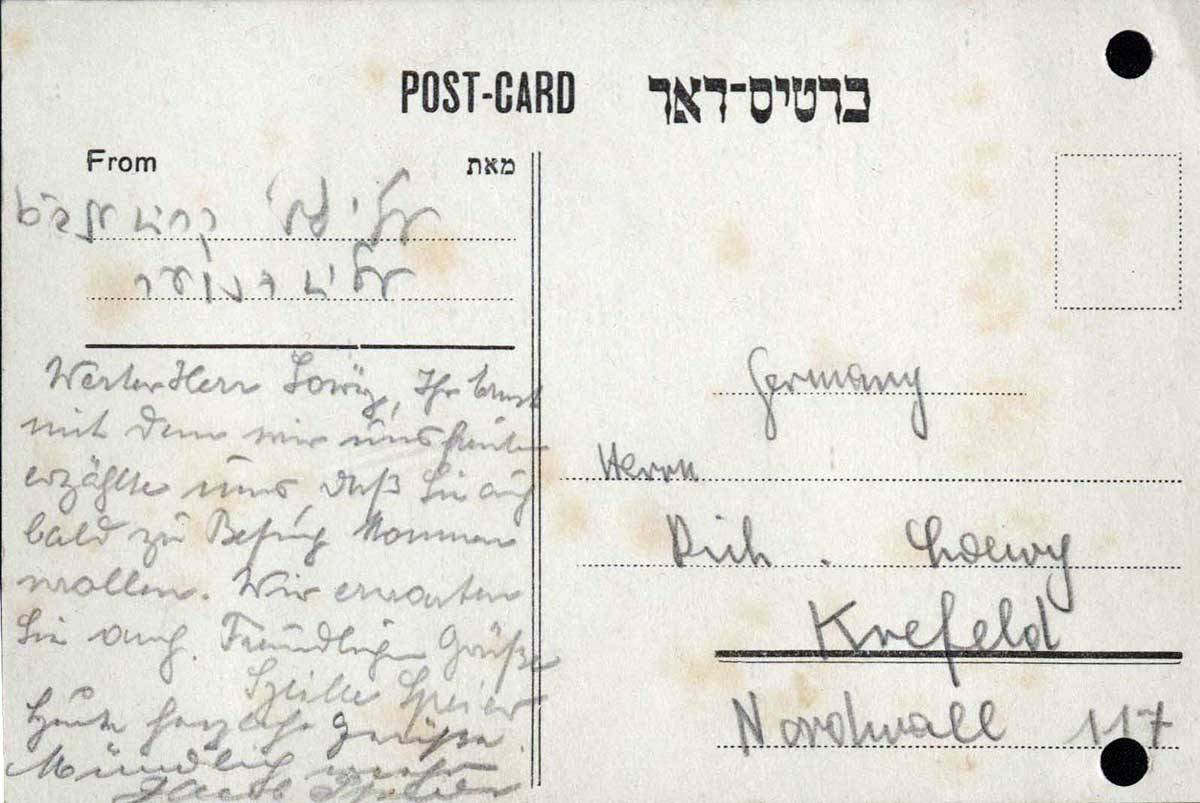 POST-CARD
כרטיס-דאר
From
מאת
Werter Herr Löwy, Ihr
mit dem wir uns heute
erzählte uns, daß Sie auch
bald zu Besuch kommen
wollen. Wir erwarten
Sie auch. Freundliche Grüße
Speier
Heute herzliche Grüße.
Mündlich mehr
Jacob Speier
Germany
Herrn
Rich. Loewy
Krefeld
Nordwall 117